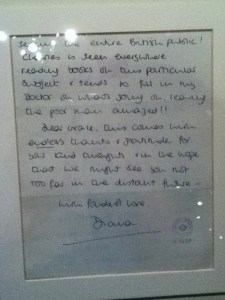 the entire British public!
Charles is seen everywhere
reading books on this particular
subject & tends to fill in my
doctor on what's going on, leaving
the poor man amazed!!
Dear Grace, this comes with
endless thanks & gratitude for
your kind thought & in the hope
that we might see you not
too far in the distant future -
with fondest love,
Diana